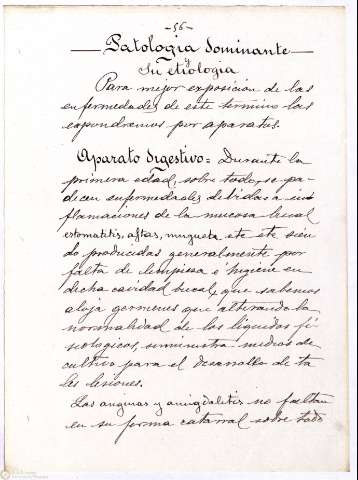 -56-
Patología dominante
y
Su etiología
Para mejor exposición de las
enfermedades de este término las
expondremos por aparatos.
Aparato digestivo= Durante la
primera edad, sobre todo, se pa-
decen enfermedades debidas a in-
flamaciones de la mucosa bucal
estomatitis, aftas, muguet, etc etc sien
do producidas generalmente por
falta de limpieza e higiene en
dicha cavidad bucal, que sabemos
aloja gérmenes que alterando la
normalidad de los líquidos fi-
siológicos, suministra medios de
cultivo para el desarrollo de ta
les lesiones.
Las anginas y amigdalitis no faltan
en su forma catarral sobre todo